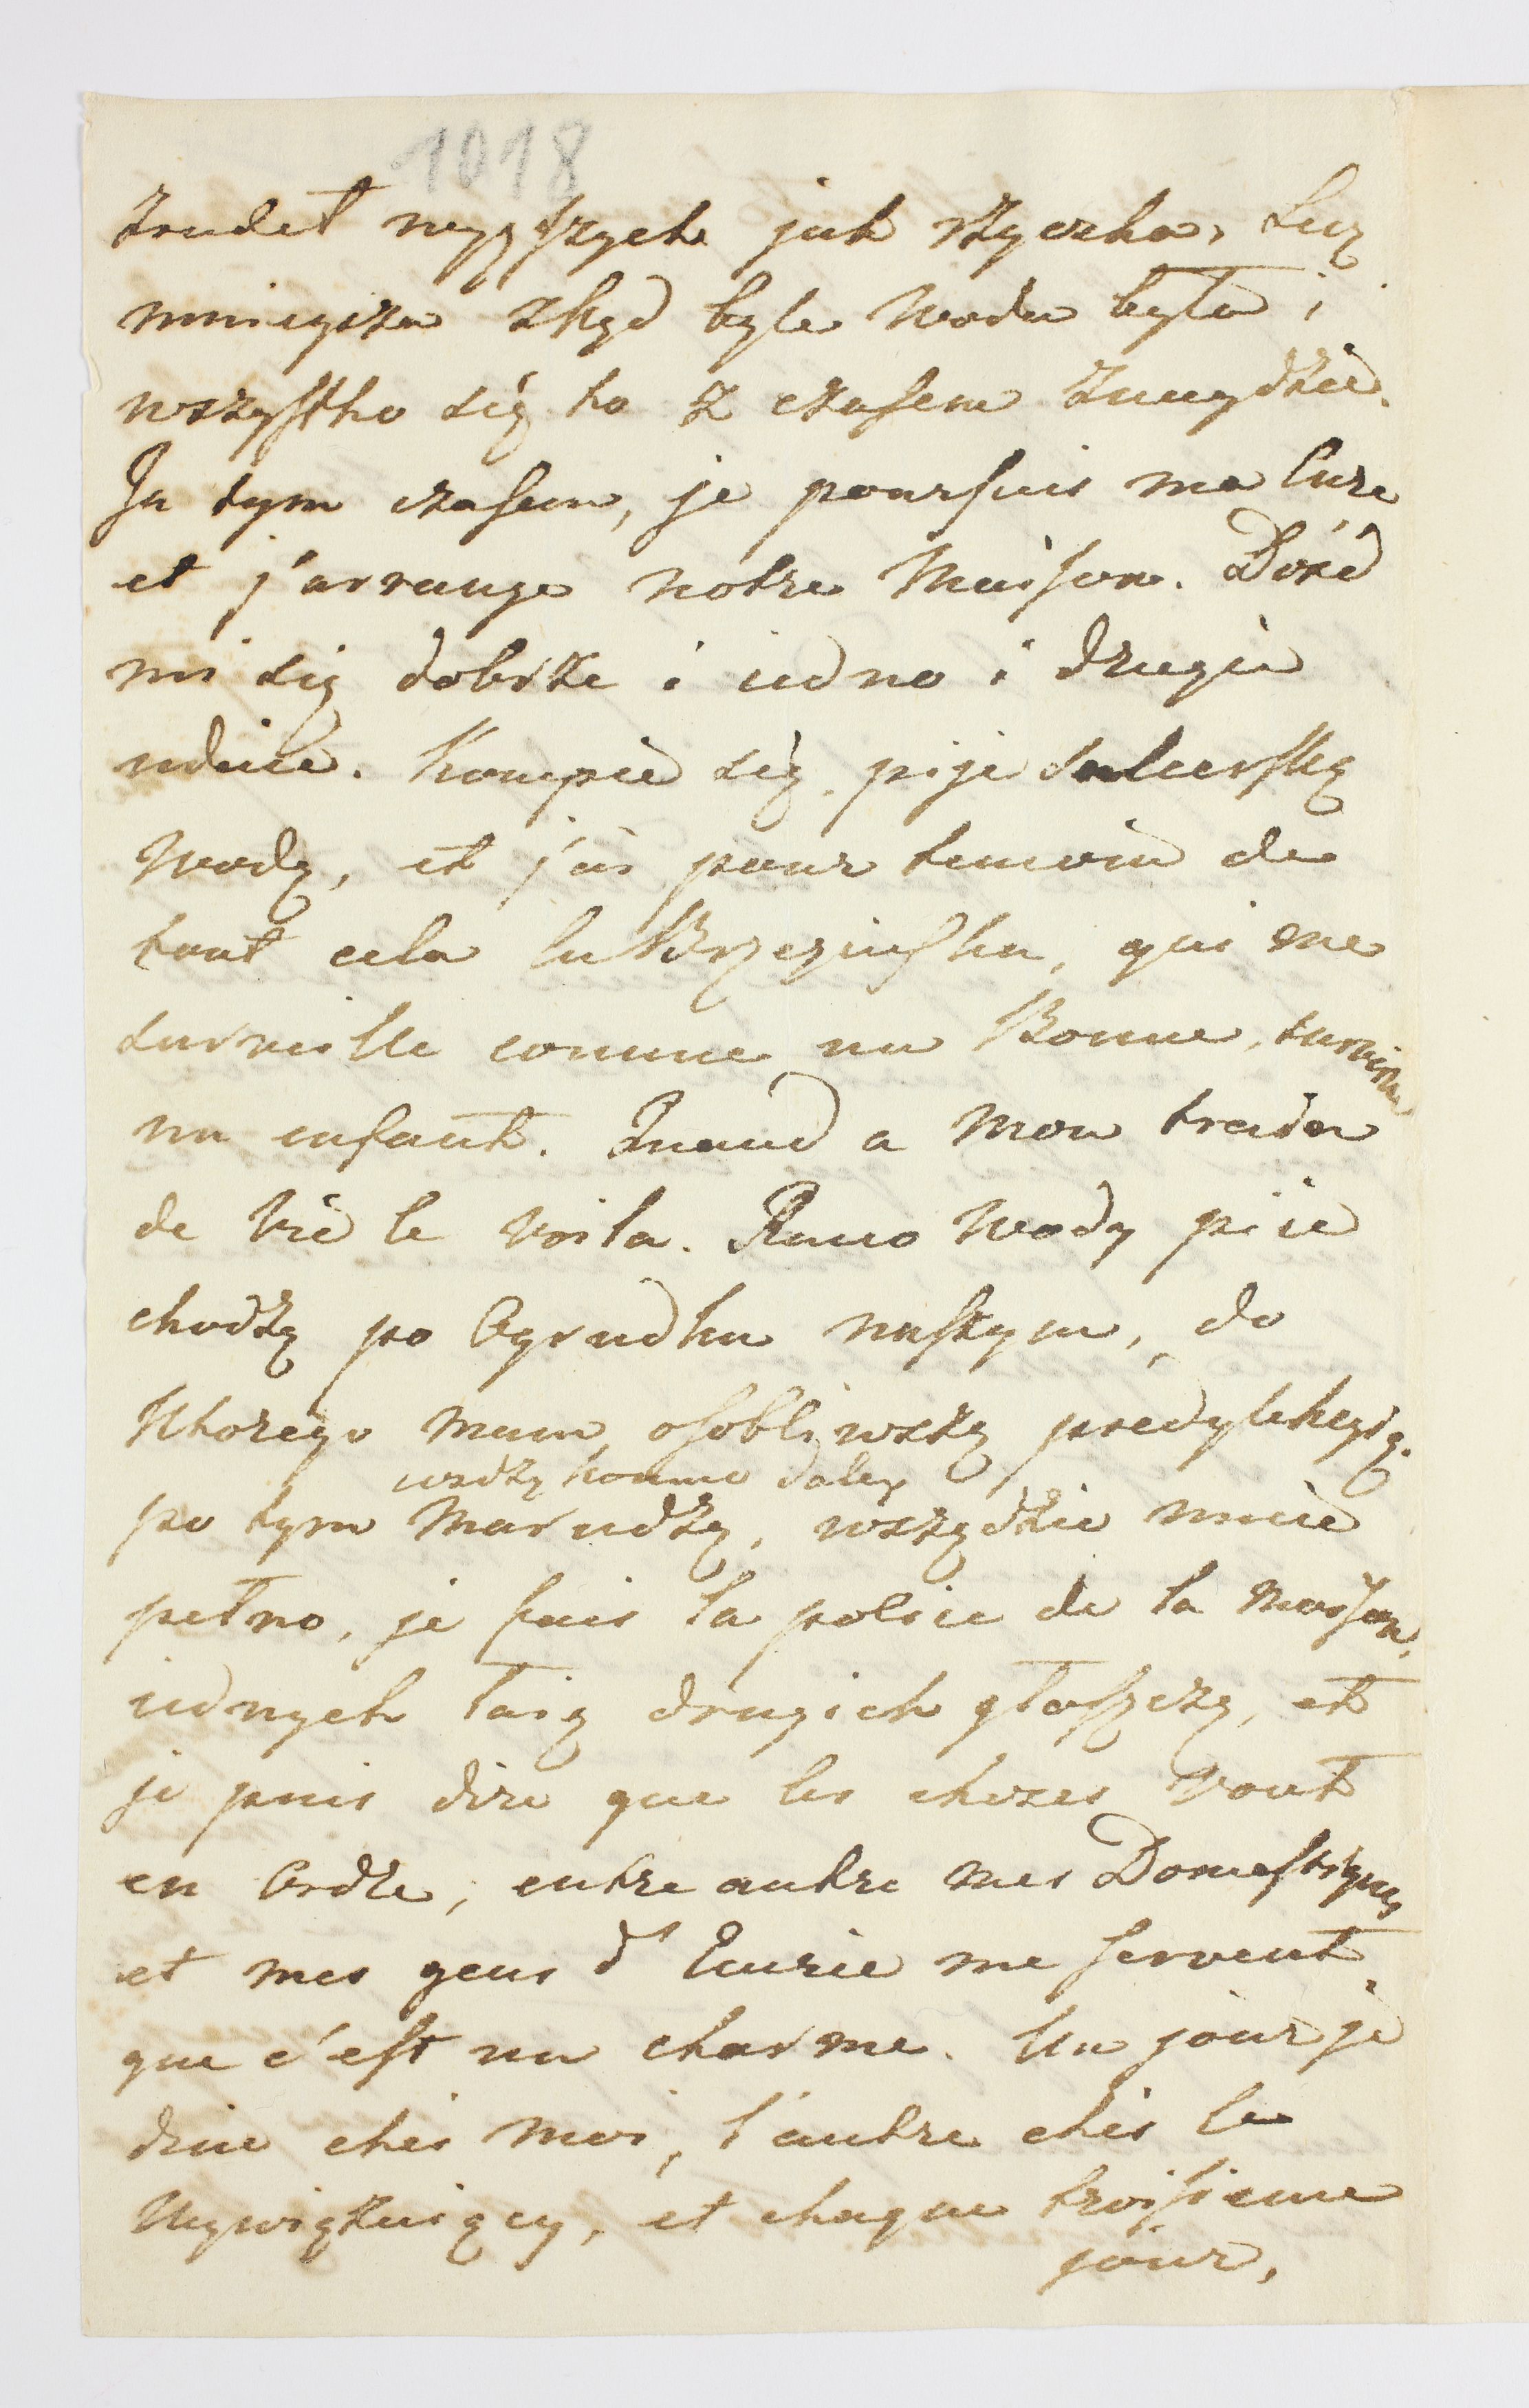 1018
zrudeł wyzszych jak rzyczka, Lecz
mnieysza zkąd byle woda była i
wszystko się to z czasem znaydzie.
Ja tym czasem, je poursuis ma Cure
et j'arrange notre Maison. Dosé
mi się dobrze i iedno i drugie
udaie. Kompie się, pije Salcerską
Wodę, et j'ai pour temoin de
tout cela la Brzezinska, qui me
surveille comme un Bonne,
un enfant. Quand a mon train
de Vie le voila. Rano Wody piie
chodzę po Ogrudku naszym, do
Ktorego mam osobliwszą predylekcyią.
iezdzę konno daley
po tym Marudzę, wszędzie mnie
pełno, je fais la police de la Maison,
iednych łaię drugich głaszczę, et
je puis dire que les chozes vont
en Ordre, entre autre mes Domestiques
et mes gens d'Ecurie me servent,
que c'est un charme. Un jour je
dine chés moi, l'autre chés le
et chaque troisieme
jour,